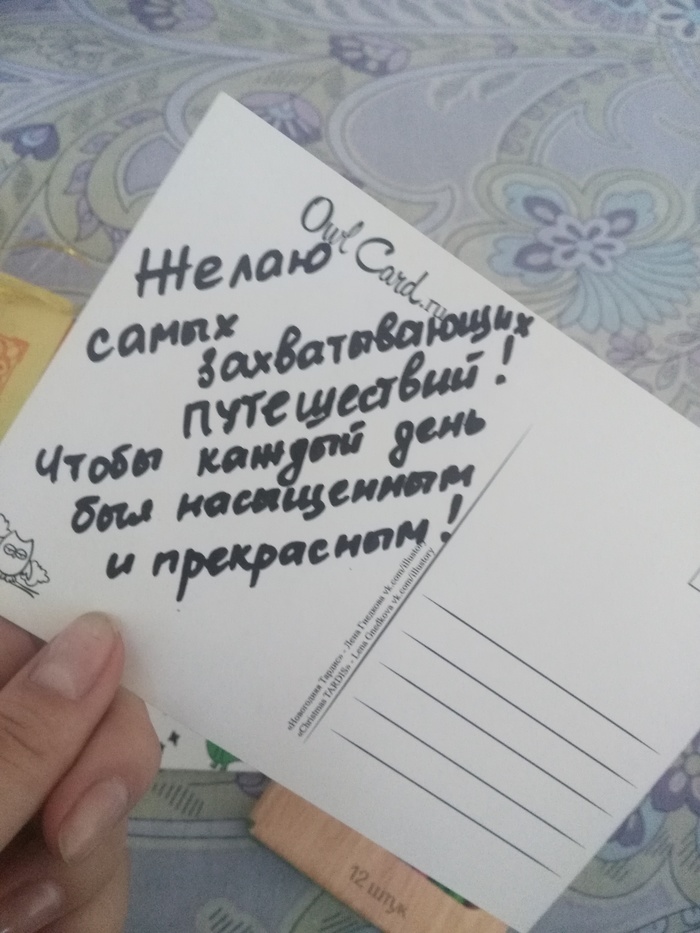 Owl Card.ru
Желаю
самых
захватывающих
путешествий!
Чтобы каждый день
был насыщенным
и прекрасным!
«Новогодняя Тардис» - Лена Гнедкова vk.com/illustory
«Christmas TARDIS» - Lena Gnedkova vk.com/illustory
12 штук